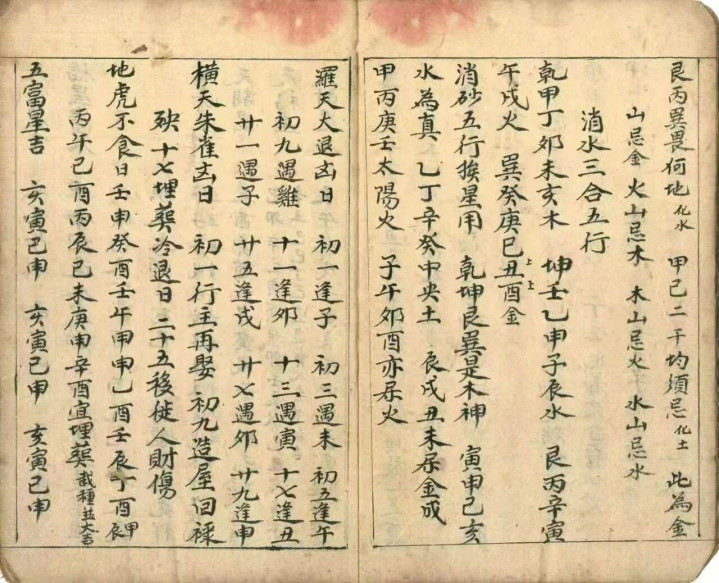 艮丙巽畏何地化水 甲己二干均須忌化土 此為金
山忌金 火山忌木 木山忌火 水山忌水
消水三合五行
乾甲丁卯未亥木 坤壬乙申子辰水 艮丙辛寅
午戌火 巽癸庚巳丑酉金 上上
消砂五行挨星用 乾坤艮巽是木神 寅申己亥
水為真 乙丁辛癸中央土 辰戌丑未尽金成
甲丙庚壬太陽火 子午卯酉亦尽火
羅天大退凶日 初一逢子 初三遇未 初五逢午
初九遇雞 十一逢卯 十三遇寅 十七逢丑
廿一遇子 廿五逢戌 廿七遇卯 廿九逢申
橫天朱雀凶日 初一行主再娶 初九造屋回祿
殃 十七埋葬冷退日 二十五移徙人財傷
地虎不食日壬申癸酉壬午甲申乙酉壬辰丁酉甲辰
丙午己酉丙辰己未庚申辛酉宜埋葬栽種並大吉
五富星吉 亥寅巳申 亥寅己申 亥寅己申